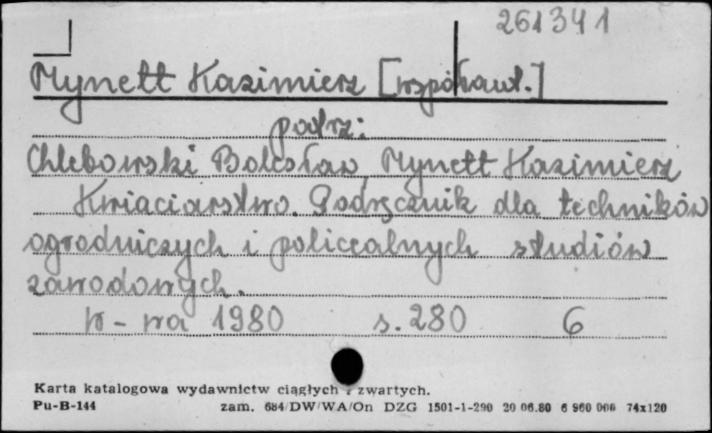 261341
Mynett Kazimierz [współaut.]
patrz:
Chlebowski Bolesław, Mynett Kazimierz
Kwiaciarstwo. Podręcznik dla techników
ogrodniczych i policealnych studiów
zawodowych.
W-wa 1980 s. 280 6
Karta katalogowa wydawnictw ciągłych i zwartych.
Pu-B-144 zam. 684/DW/WA/On DZG 1501-1-290 20 06.80 6 960 000 74x120